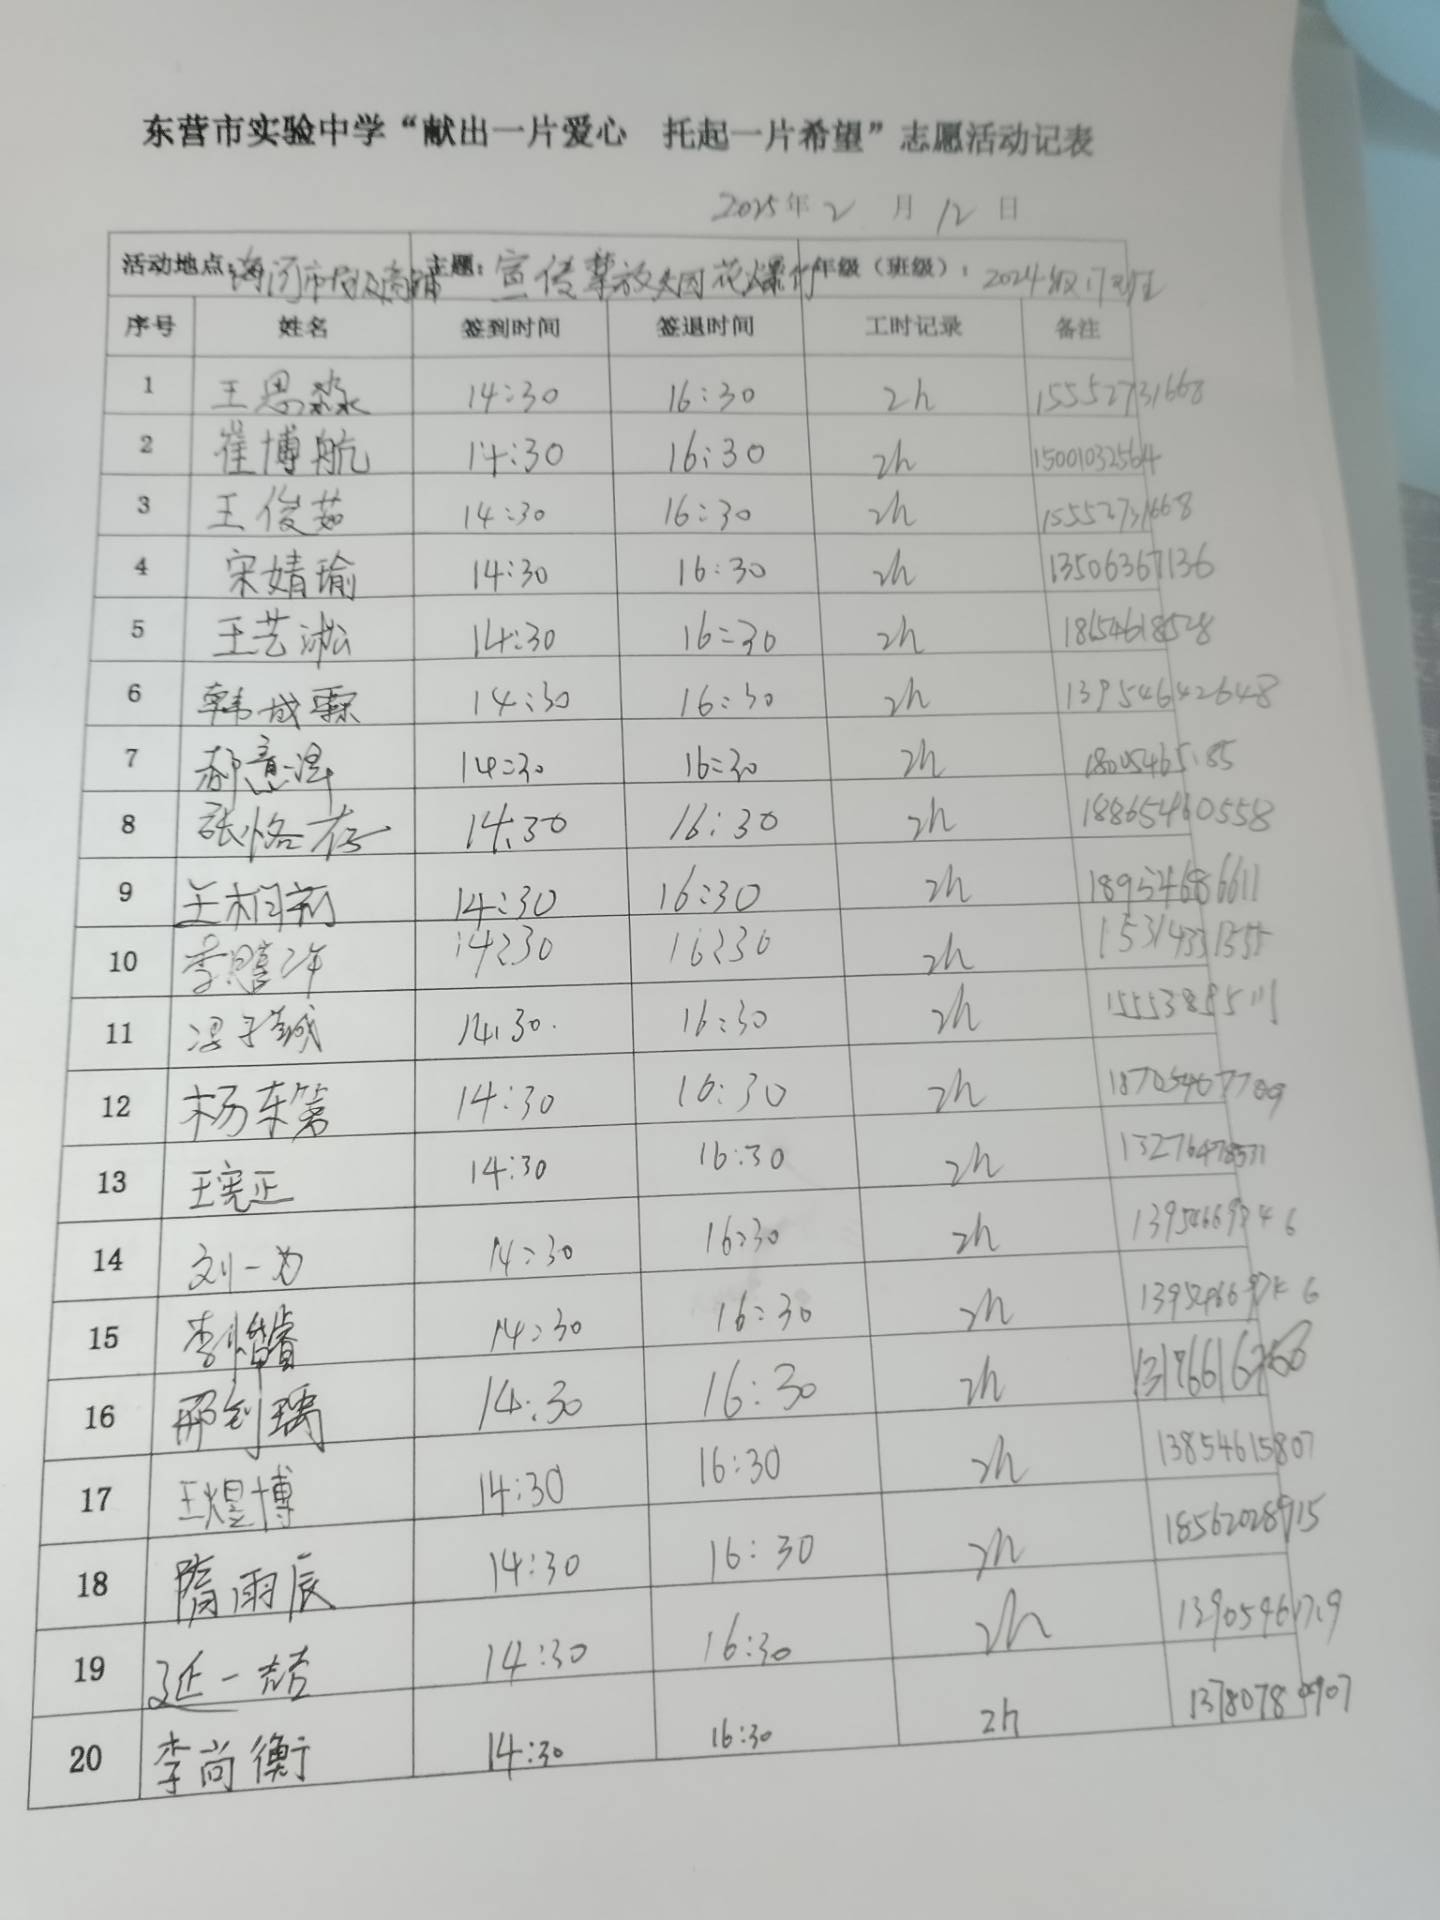 东营市实验中学“献出一片爱心 托起一片希望”志愿活动记表
2025年 2 月 12 日
活动地点: 主题: 宣传禁放烟花爆竹 年级（班级）: 2024级17班
序号 姓名 签到时间 签退时间 工时记录 备注
1 王思淼 14:30 16:30 2h 15552731668
2 崔博航 14:30 16:30 2h 15001032564
3 王俊茹 14:30 16:30 2h 15552731668
4 宋婧瑜 14:30 16:30 2h 13506367136
5 王艺淞 14:30 16:30 2h 18654618528
6 韩成霖 14:30 16:30 2h 13954642648
7 郝意泽 14:30 16:30 2h
8 张恪存 14:30 16:30 2h 18865460558
9 王桐 14:30 16:30 2h 18954686611
10 14:30 16:30 2h
11 14:30 16:30 2h
12 杨东第 14:30 16:30 2h 18705467709
13 王宪正 14:30 16:30 2h 13276478531
14 刘一为 14:30 16:30 2h 13954669746
15 14:30 16:30 2h 13954669746
16 邢钊瑀 14:30 16:30 2h
17 王煜博 14:30 16:30 2h 13854615807
18 隋雨辰 14:30 16:30 2h 18562028915
19 延一喆 14:30 16:30 2h 13905461719
20 李尚衡 14:30 16:30 2h